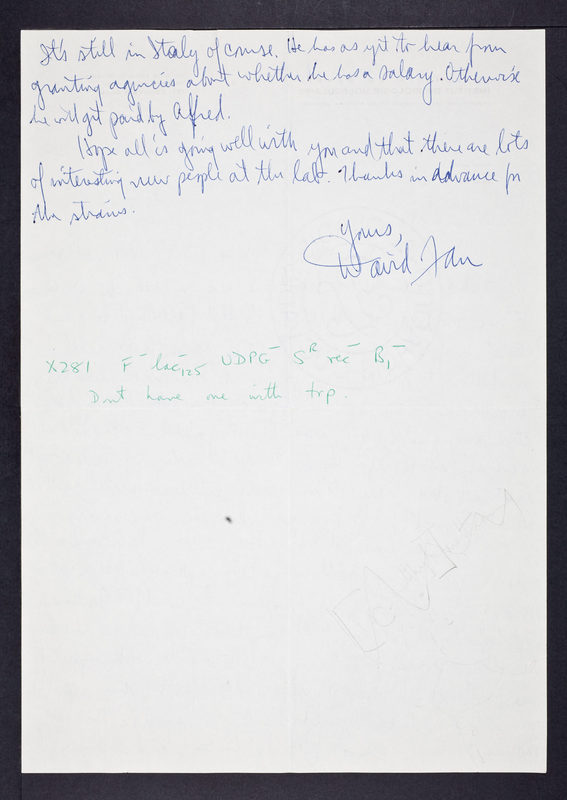 It's still in Italy of course. He has as yet to hear from
granting agencies about whether he has a salary. Otherwise
he will get paid by Alfred.
Hope all is going well with you and that there are lots
of interesting new people at the lab. Thanks in advance for
the strains.
Yours,
David Fan
X281 F⁻ lac⁻₁₂₅ UDPG⁻ Sᴿ rec⁻ B₁⁻
Dont have one with trp.